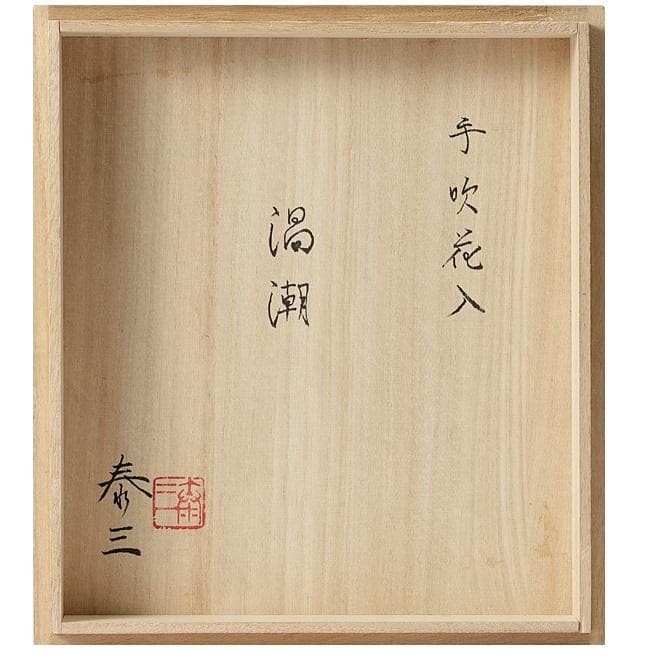 手吹花入
渦潮
泰三